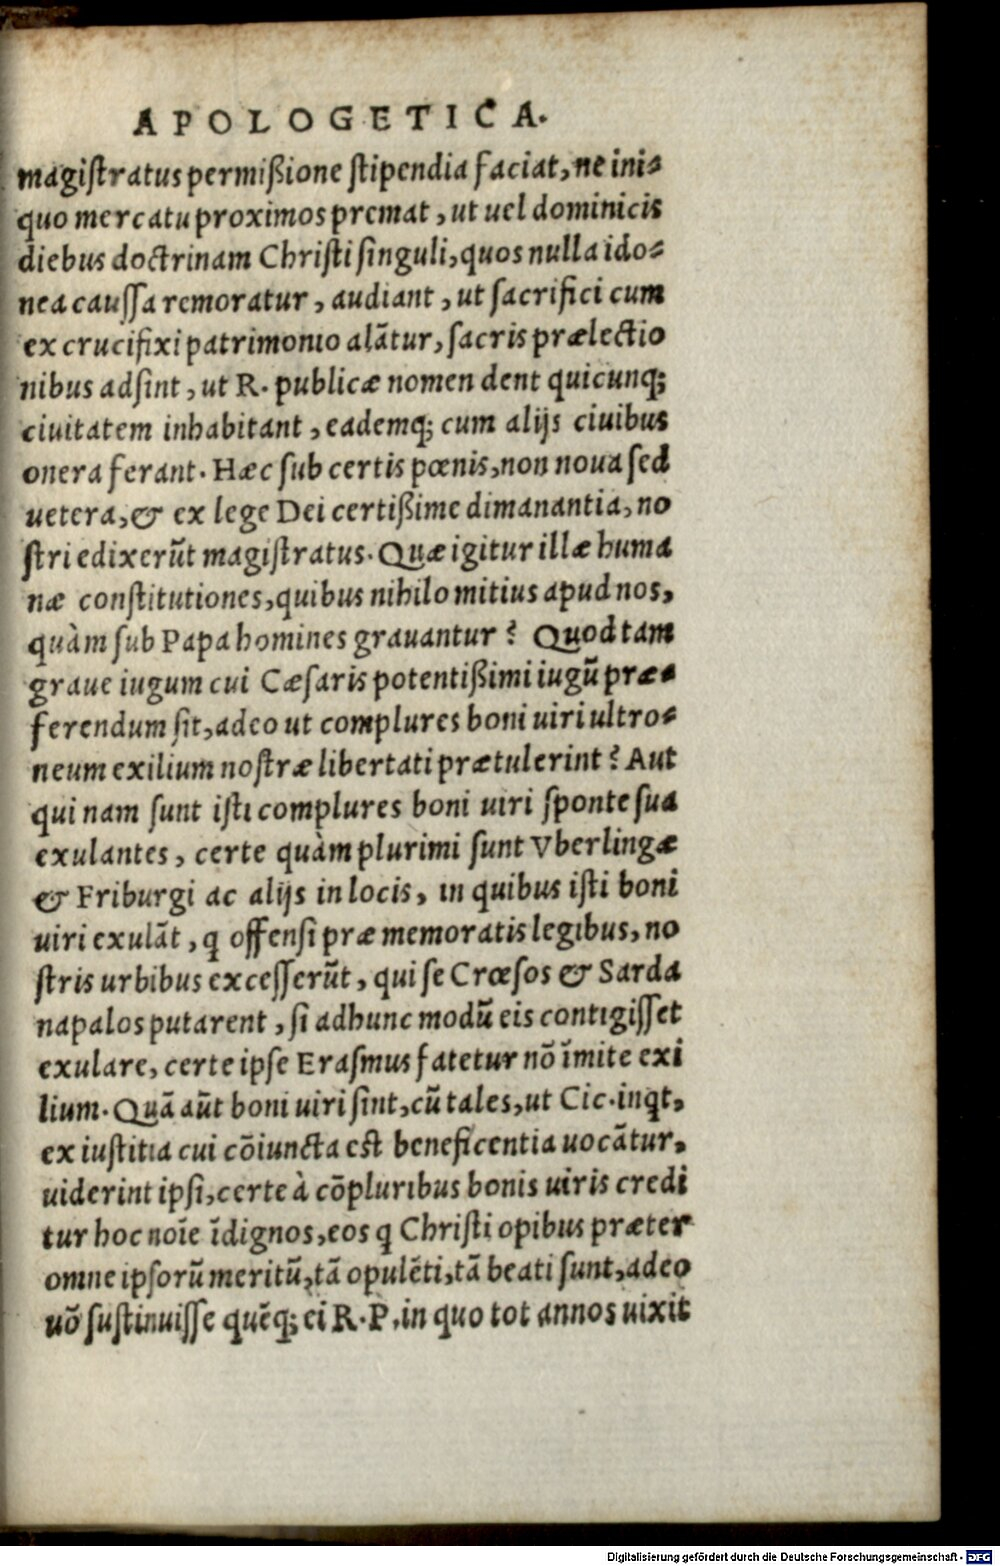 APOLOGETICA.
magiſtratus permißione ſtipendia faciat, ne ini⸗
quo mercatu proximos premat, ut uel dominicis
diebus doctrinam Chriſti ſinguli, quos nulla ido⸗
nea cauſſa remoratur, audiant, ut ſacrifici cum
ex crucifixi patrimonio alãtur, ſacris prælectio
nibus adſint, ut R. publicæ nomen dent quicunq;
ciuitatem inhabitant, eademq; cum alijs ciuibus
onera ferant. Hæc ſub certis pœnis, non noua ſed
uetera, & ex lege Dei certißime dimanantia, no
ſtri edixerũt magiſtratus. Quæ igitur illæ huma
næ conſtitutiones, quibus nihilo mitius apud nos,
quàm ſub Papa homines grauantur? Quod tam
graue iugum cui Cæſaris potentißimi iugũ præ⸗
ferendum ſit, adeo ut complures boni uiri ultro⸗
neum exilium noſtræ libertati prætulerint? Aut
qui nam ſunt iſti complures boni uiri ſponte ſua
exulantes, certe quàm plurimi ſunt Vberlingæ
& Friburgi ac alijs in locis, in quibus iſti boni
uiri exulãt, q offenſi præmemoratis legibus, no
ſtris urbibus exceſſerũt, qui ſe Crœſos & Sarda
napalos putarent, ſi adhunc modũ eis contigiſſet
exulare, certe ipſe Eraſmus fatetur nõ ĩmite exi
lium. Quã aũt boni uiri ſint, cũ tales, ut Cic. inqt,
ex iuſtitia cui cõiuncta eſt beneficentia uocãtur,
uiderint ipſi, certe à cõpluribus bonis uiris credi
tur hoc noĩe ĩdignos, eos q Chriſti opibus præter
omne ipſorũ meritũ, tã opulẽti, tã beati ſunt, adeo
uõ ſuſtinuiſſe quẽq; ei R. P. in quo tot annos uixit
Digitalisierung gefördert durch die Deutsche Forschungsgemeinschaft - DFG